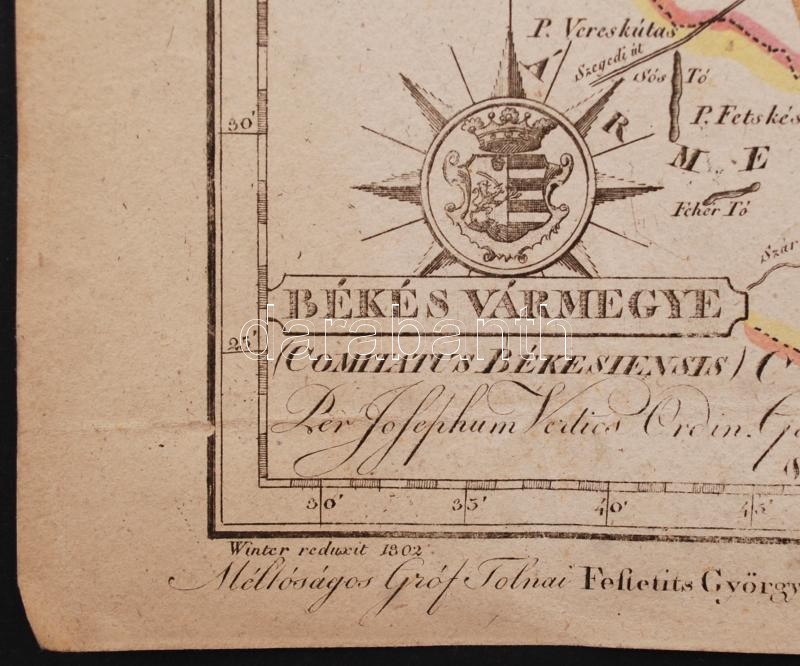 P. Vereskútas
Szegedi út
Sós Tó
P. Fetskés
ÁRME
Fehér Tó
Szár
30'
BÉKÉS VÁRMEGYE
darabanth
25'
(COMITATUS BÉKESIENSIS)
Per Josephum Vertics Ordin.
30' 35' 40' 45'
Winter reduxit 1802
Méltóságos Gróf Tolnai Festetits György